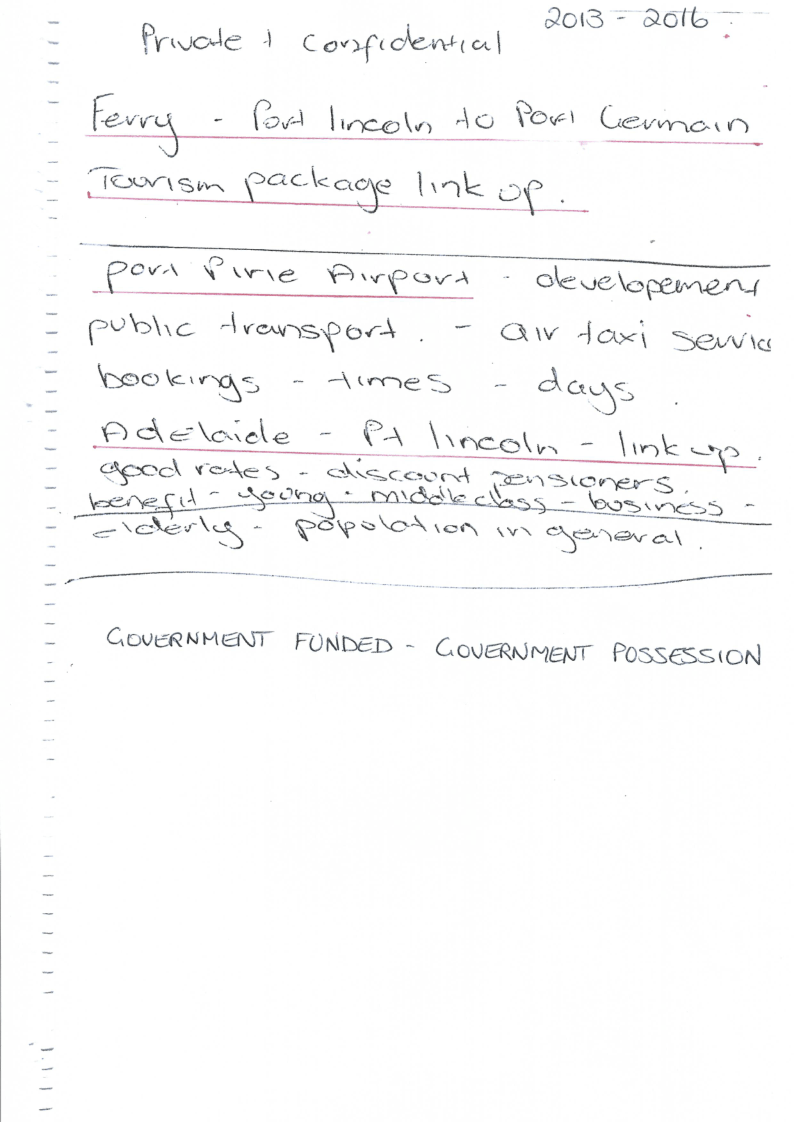 2013 - 2016
Private + Confidential
Ferry - Port lincoln to Port Germain
Tourism package link up.
port Pirie Airport - developement
public transport. - air taxi service
bookings - times - days.
Adelaide - Pt lincoln - link up.
good rates - discount pensioners.
benefit - young - middle class - business -
elderly - population in general.
GOVERNMENT FUNDED - GOVERNMENT POSSESSION